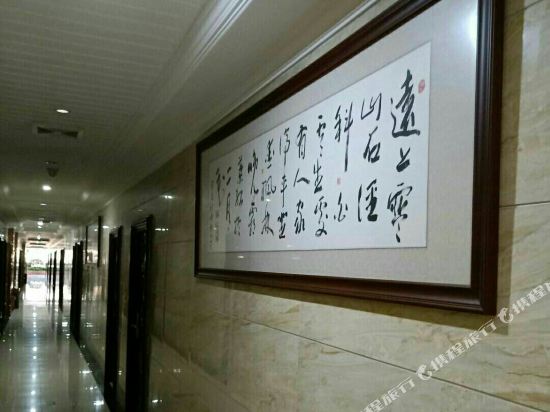 遠上寒
山石徑
斜白
雲生處
有人家
停車坐
愛楓林
晚霜
葉紅於
二月
花
携程旅行
携程旅行